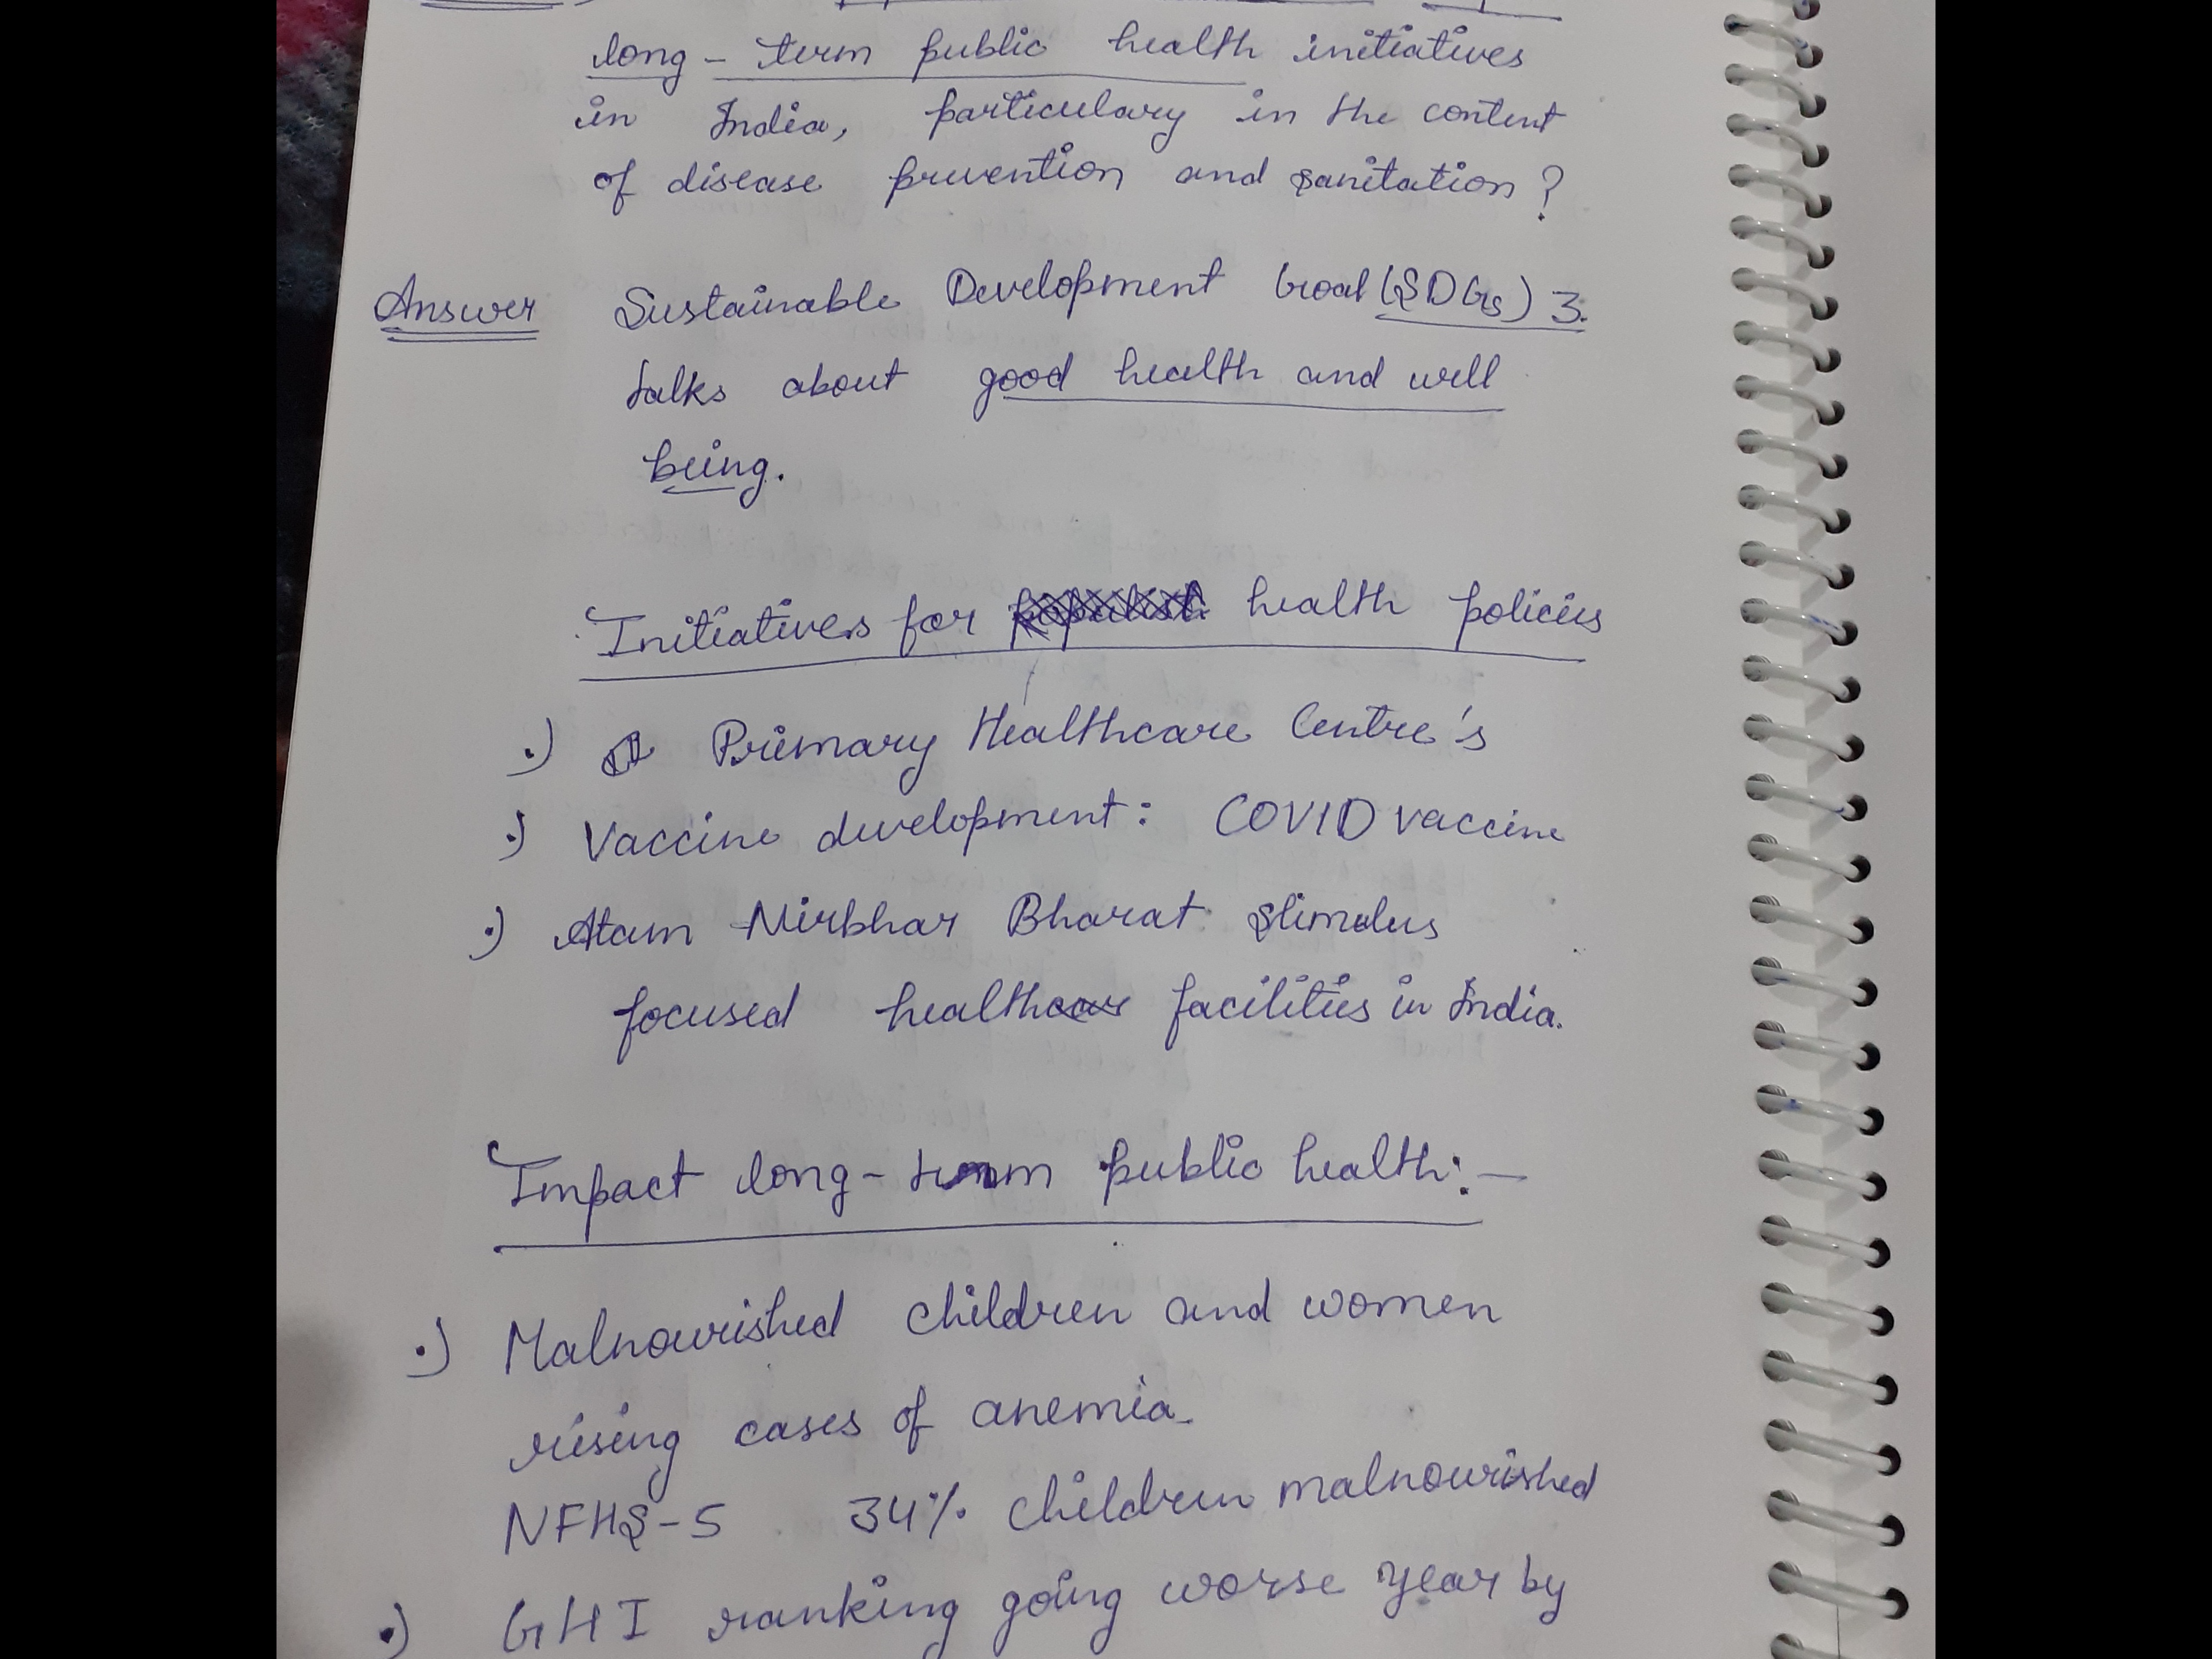 long - term public health initiatives
in India, particulary in the content
of disease prevention and sanitation ?
Answer Sustainable Development Goal (SDGs) 3.
talks about good health and well
being.
Initiatives for health policies
.) Primary Healthcare Centre's
.) Vaccine development : COVID vaccine
.) Atam Nirbhar Bharat stimulus
focused healthcare facilities in India.
Impact long - term public health :-
.) Malnourished children and women
rising cases of anemia.
NFHS-5 34% children malnourished
.) GHI ranking going worse year by